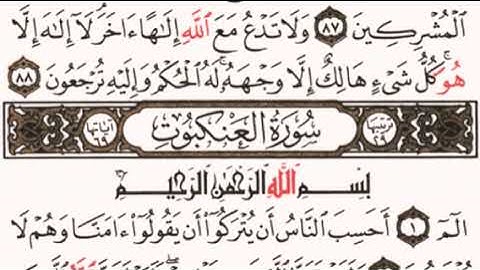 ٱلْمُشْرِكِينَ ٨٧ وَلَا تَدْعُ مَعَ ٱللَّهِ إِلَٰهًا ءَاخَرَ لَآ إِلَٰهَ إِلَّا
هُوَ كُلُّ شَىْءٍ هَالِكٌ إِلَّا وَجْهَهُۥ لَهُ ٱلْحُكْمُ وَإِلَيْهِ تُرْجَعُونَ ٨٨
ترتيبها ٢٩ سُورَةُ الْعَنْكَبُوتِ آياتها ٦٩
بِسْمِ ٱللَّهِ ٱلرَّحْمَٰنِ ٱلرَّحِيمِ
الٓمٓ ١ أَحَسِبَ ٱلنَّاسُ أَن يُتْرَكُوٓا۟ أَن يَقُولُوٓا۟ ءَامَنَّا وَهُمْ لَا